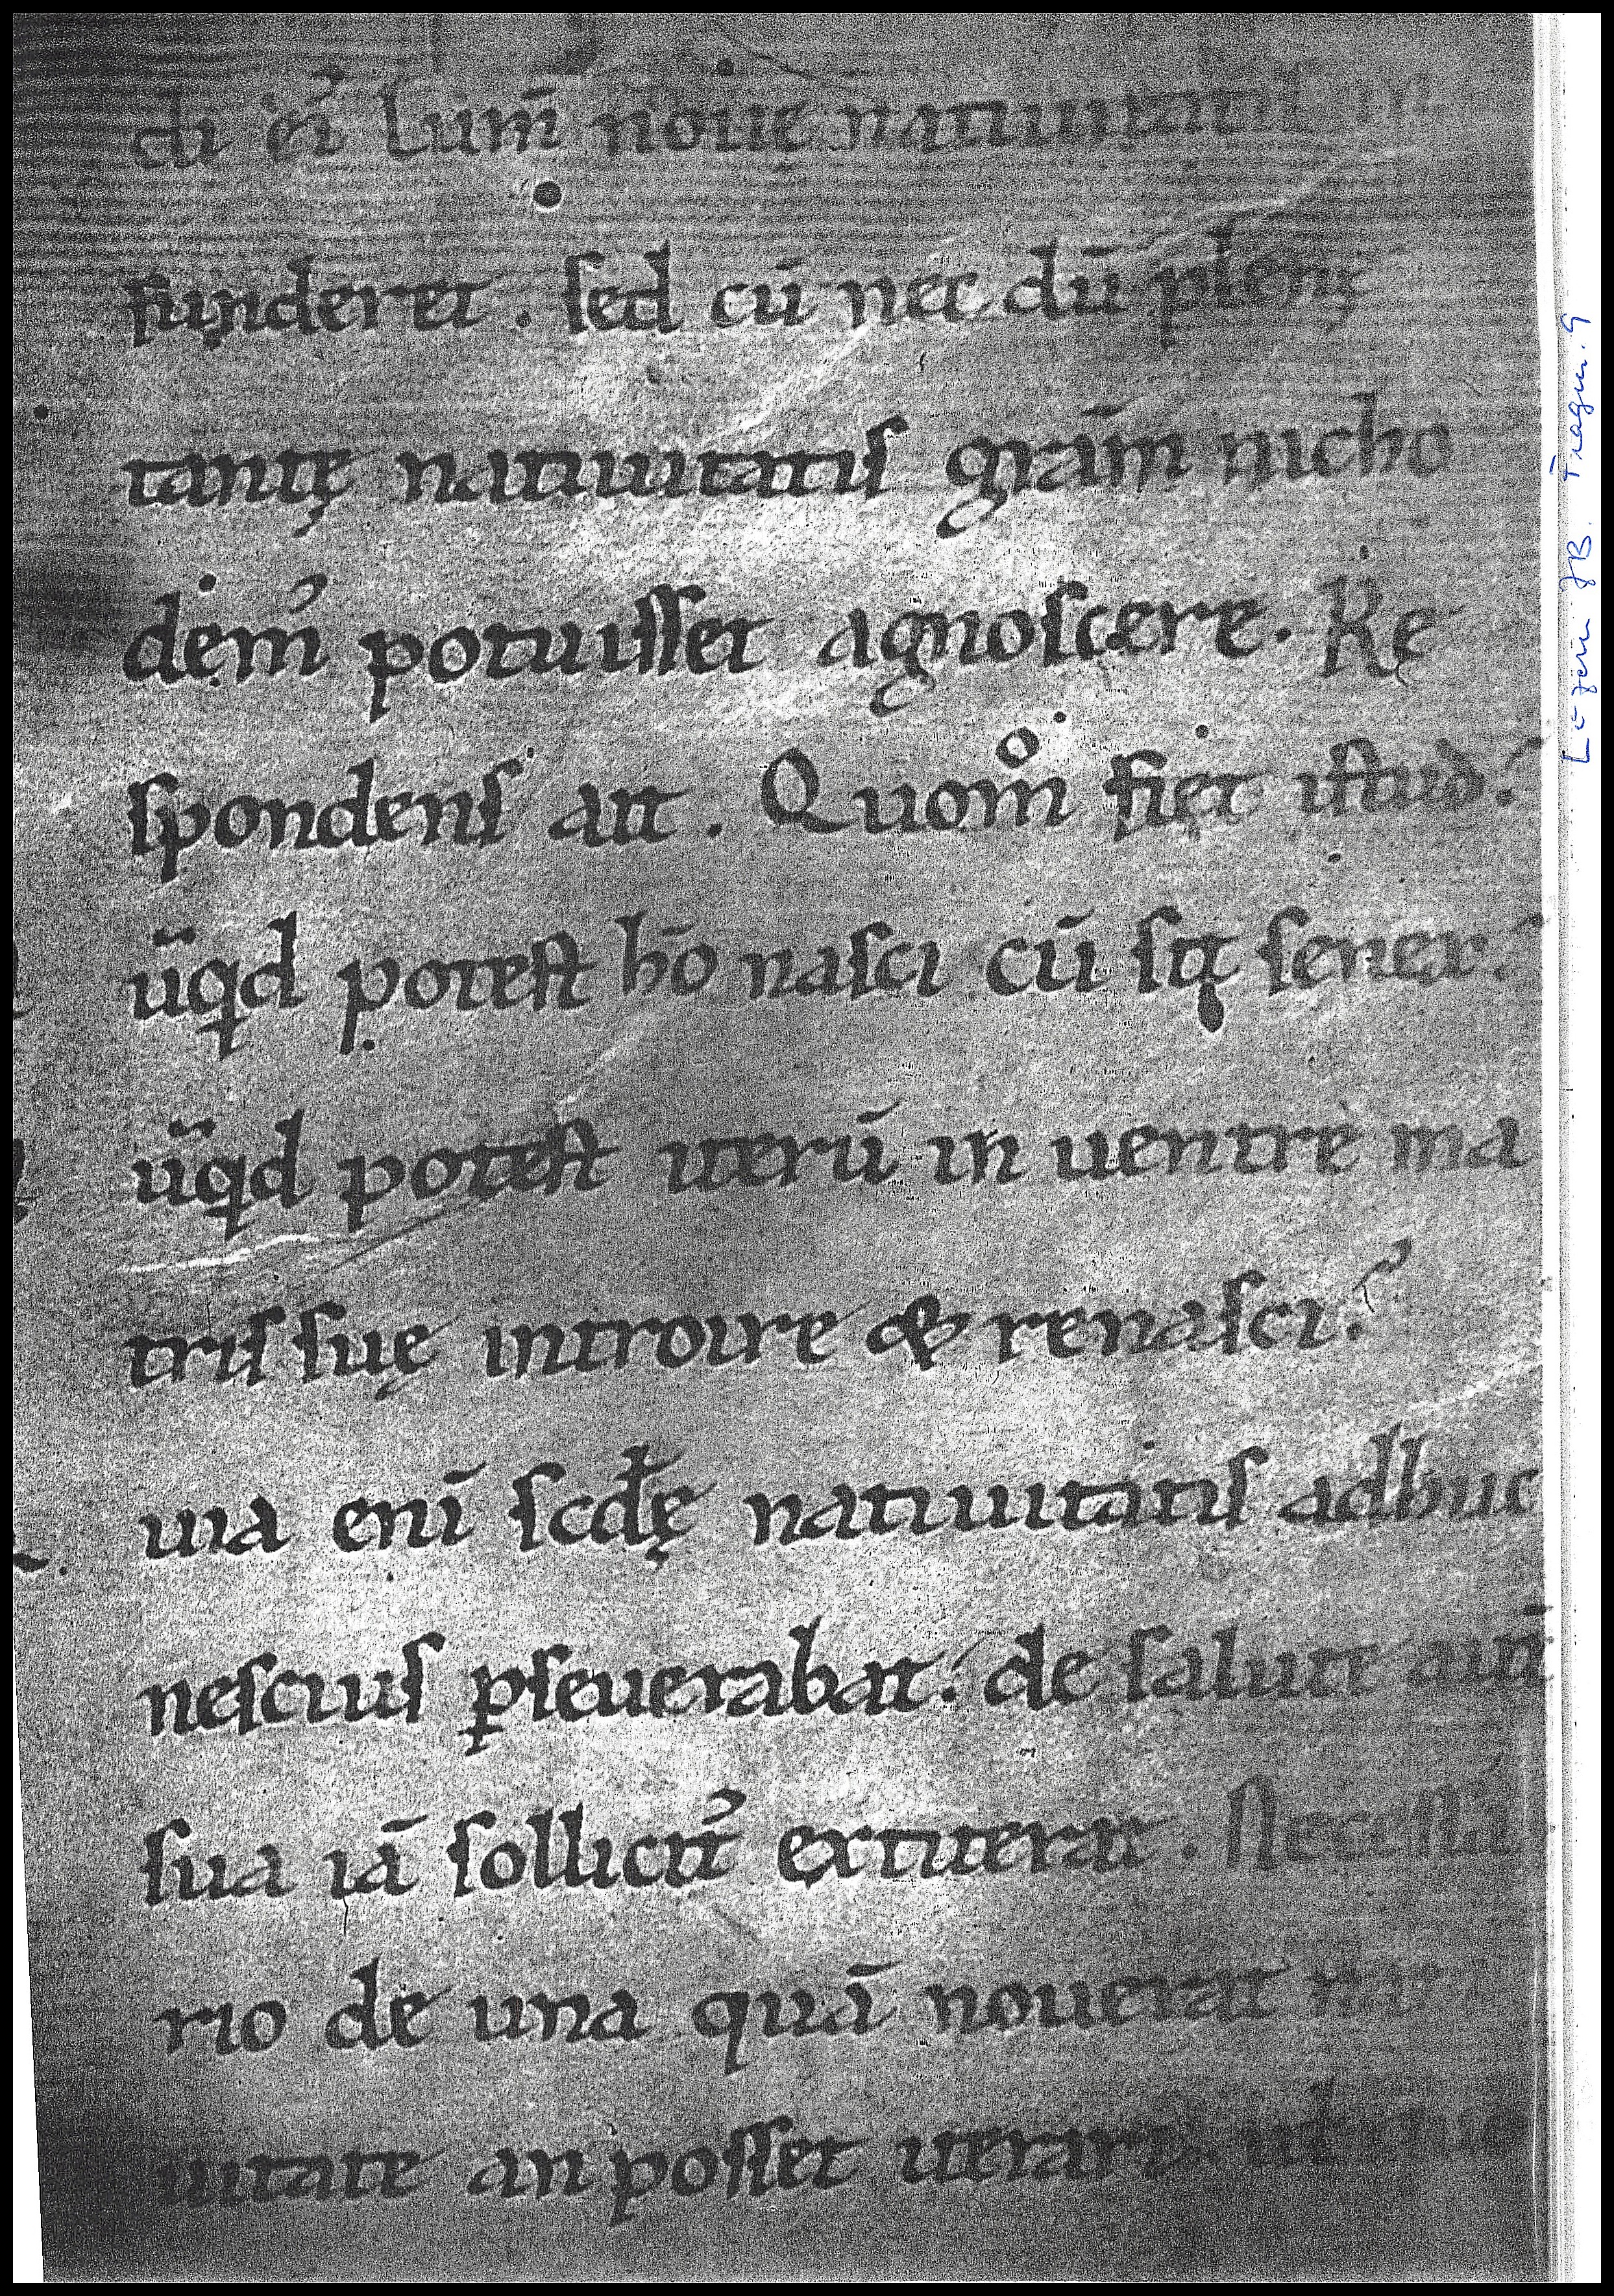 di ei᾽ lum̄ nouę natiuitatis
funderet . sed cū nec dū
tantę natiuitatis grām nicho
dem᾽ potuisset agnoscere. Re
spondens ait . Quom̊ fiet istud?
ūqd potest hō nasci cū sit senex?
ūqd potest iterū in uentrē ma
tris suę introire & renasci?
uia enī scdę natiuitatis adhuc
nescius pseuerabat. de salute aūt
sua iā sollicit᾽ extiterat . Necessa
rio de una quā nouerat
uitate an posset iterari
Luzern JB. Fragm. 9